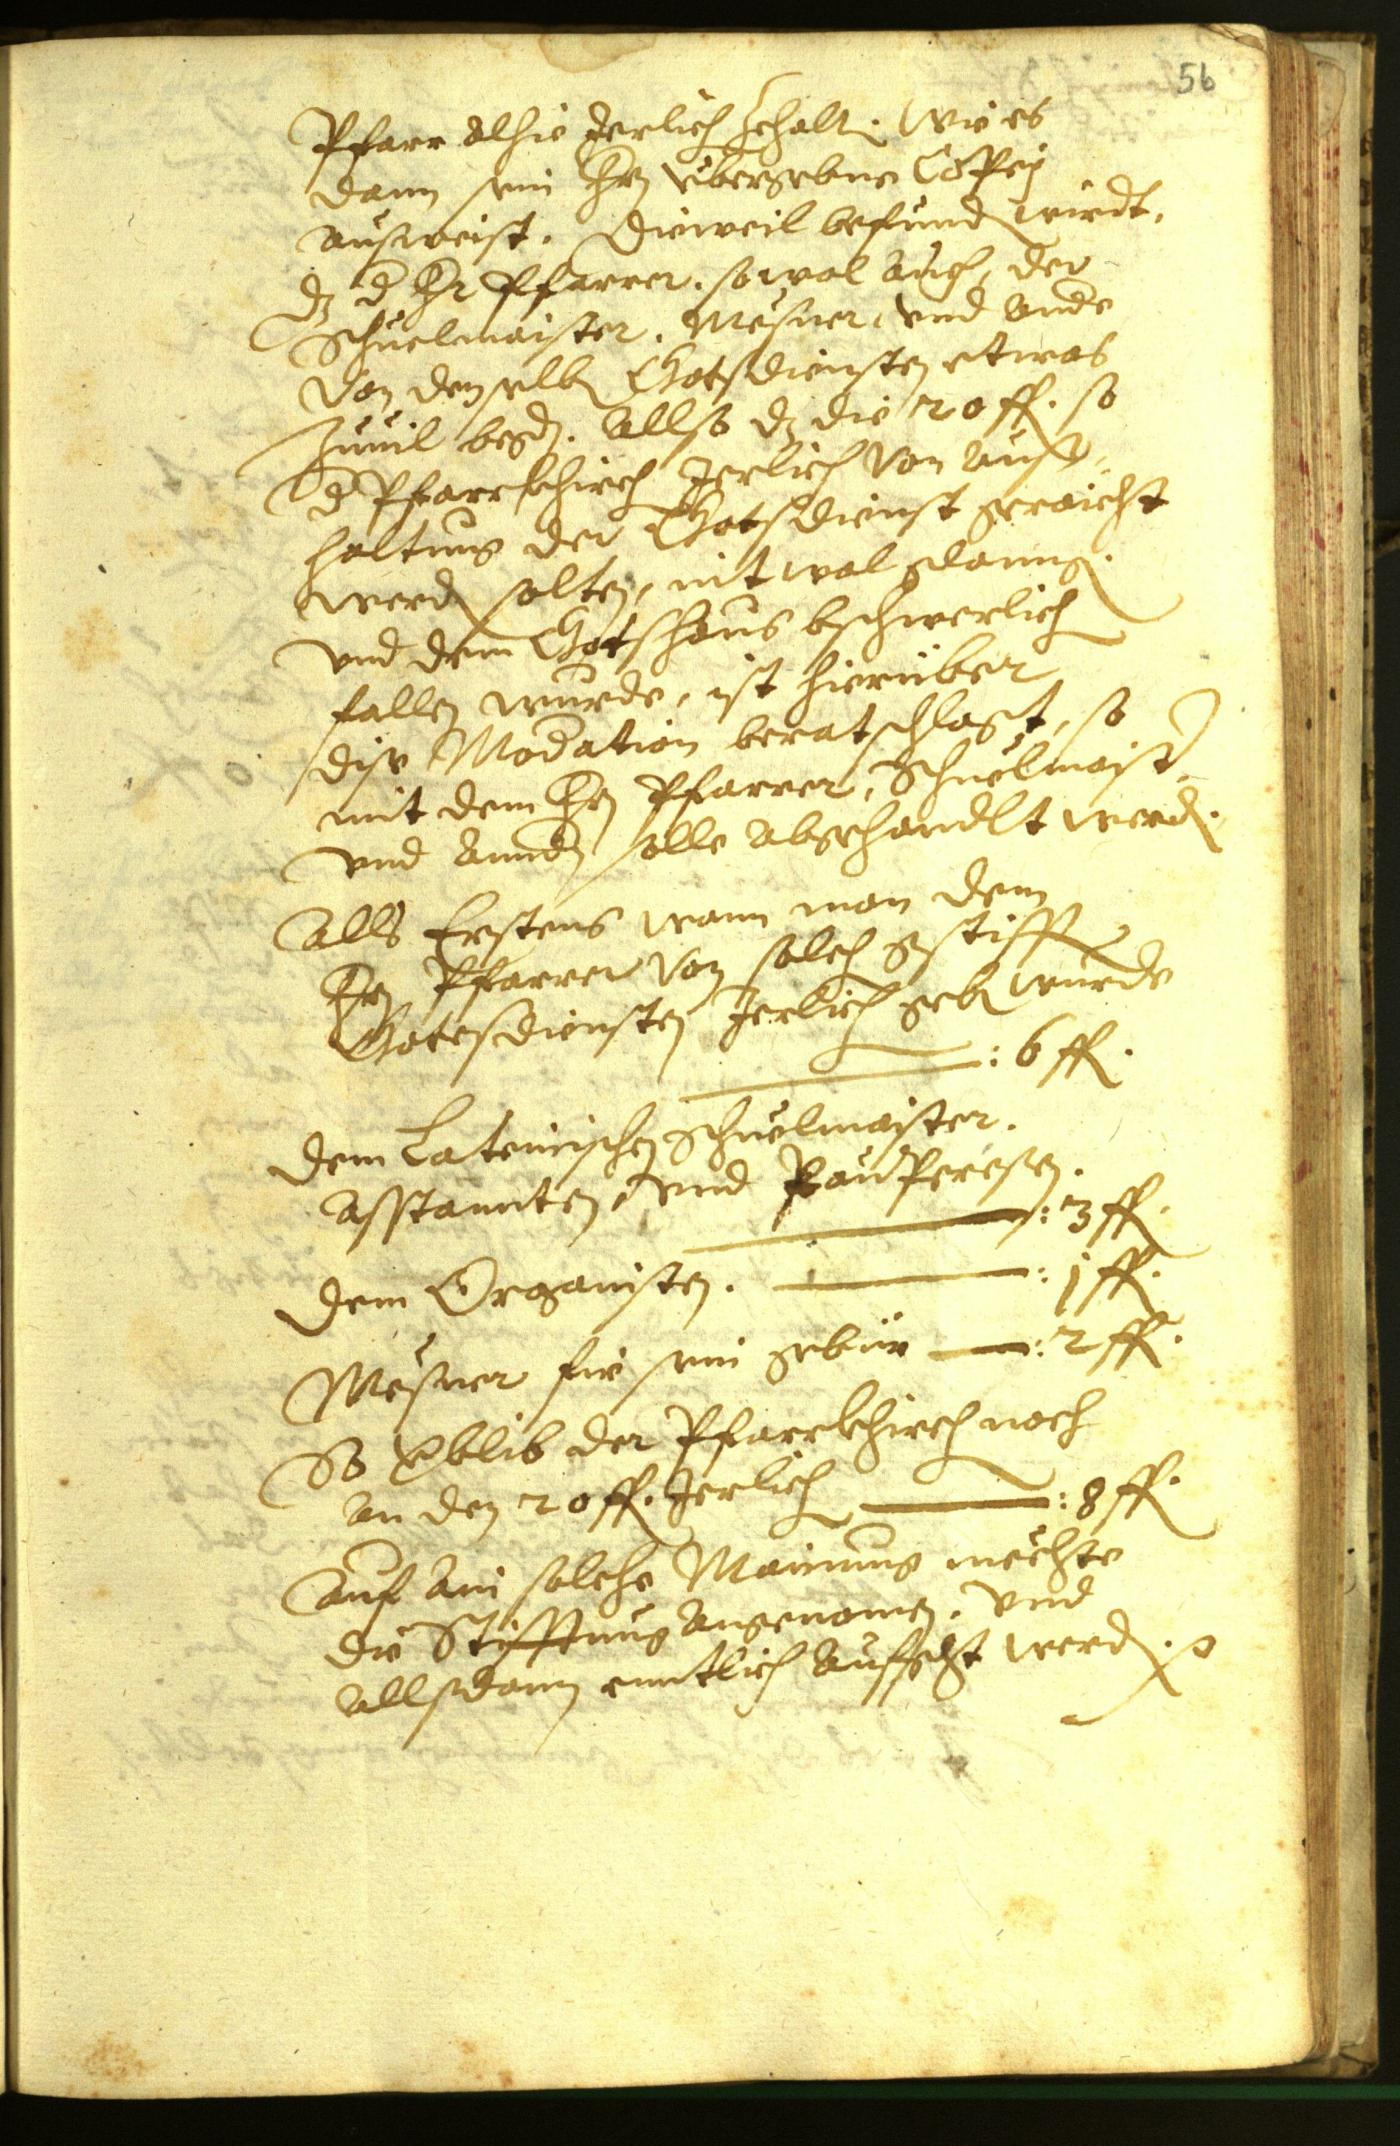 56
Pfarr alhie Jerlich zehalt. Wie es
dann sein Hrn vbergebne Coppej
ausweist. Dieweil befundn wirdt,
dz d Hr Pfarrer. sowol auch, der
Schuelmaister. Mesner, vnd ande
von denselbn Gotsdiensten etwas
Zuuil begern. Allso dz die 20 fl. so
d Pfarrkhirch Jerlich von aus-
haltung der Gotsdienst geraicht
werdn solten, nit wol glanng.
vnd dem Gotshaus bschwerlich
fallen wurde, ist hierüber
dise Modation beratschlagt, so
mit dem Hrn Pfarrer, Schuelmaistr
vnd anndn solle abgehandlt werdn.
Alls Erstens wann man dem
Hrn Pfarrer von solch gestifften
Gotesdiensten Jerlich gebn wurde
: 6 fl.
Dem Lateinischen Schuelmaister.
Asstannten, vnd Pauperesen.
: 3 fl.
Dem Organisten. : 1 fl.
Mesner für sein gebür : 2 fl.
So verblib der Pfarrkhirch noch
an den 20 fl. Jerlich : 8 fl.
Auf ain solche Mainung mechte
die Stifftung angenomen. vnd
allsdann enntlich aufgsezt werdn.